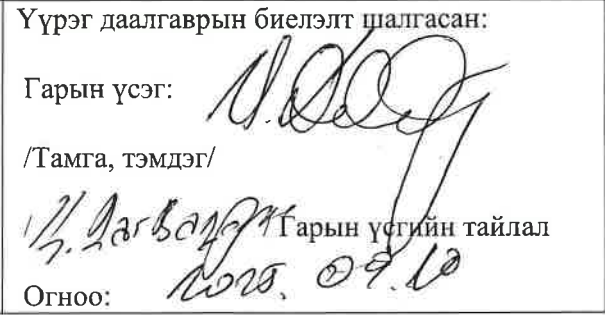 Үүрэг даалгаврын биелэлт шалгасан:
Гарын үсэг:
/Тамга, тэмдэг/
Гарын үсгийн тайлал
Огноо: 2025. 09.10